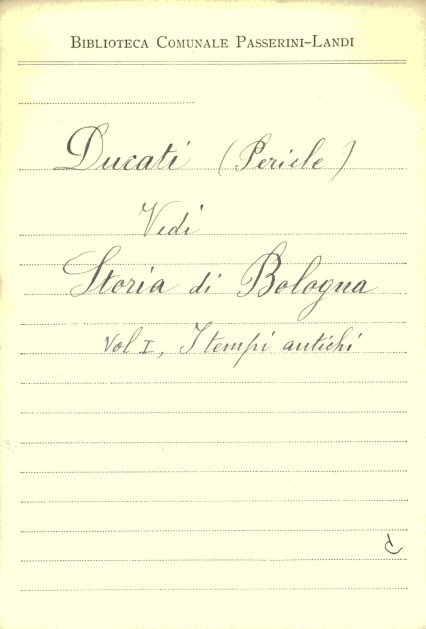 BIBLIOTECA COMUNALE PASSERINI-LANDI
Ducati (Pericle)
Vedi
Storia di Bologna
Vol I, I tempi antichi